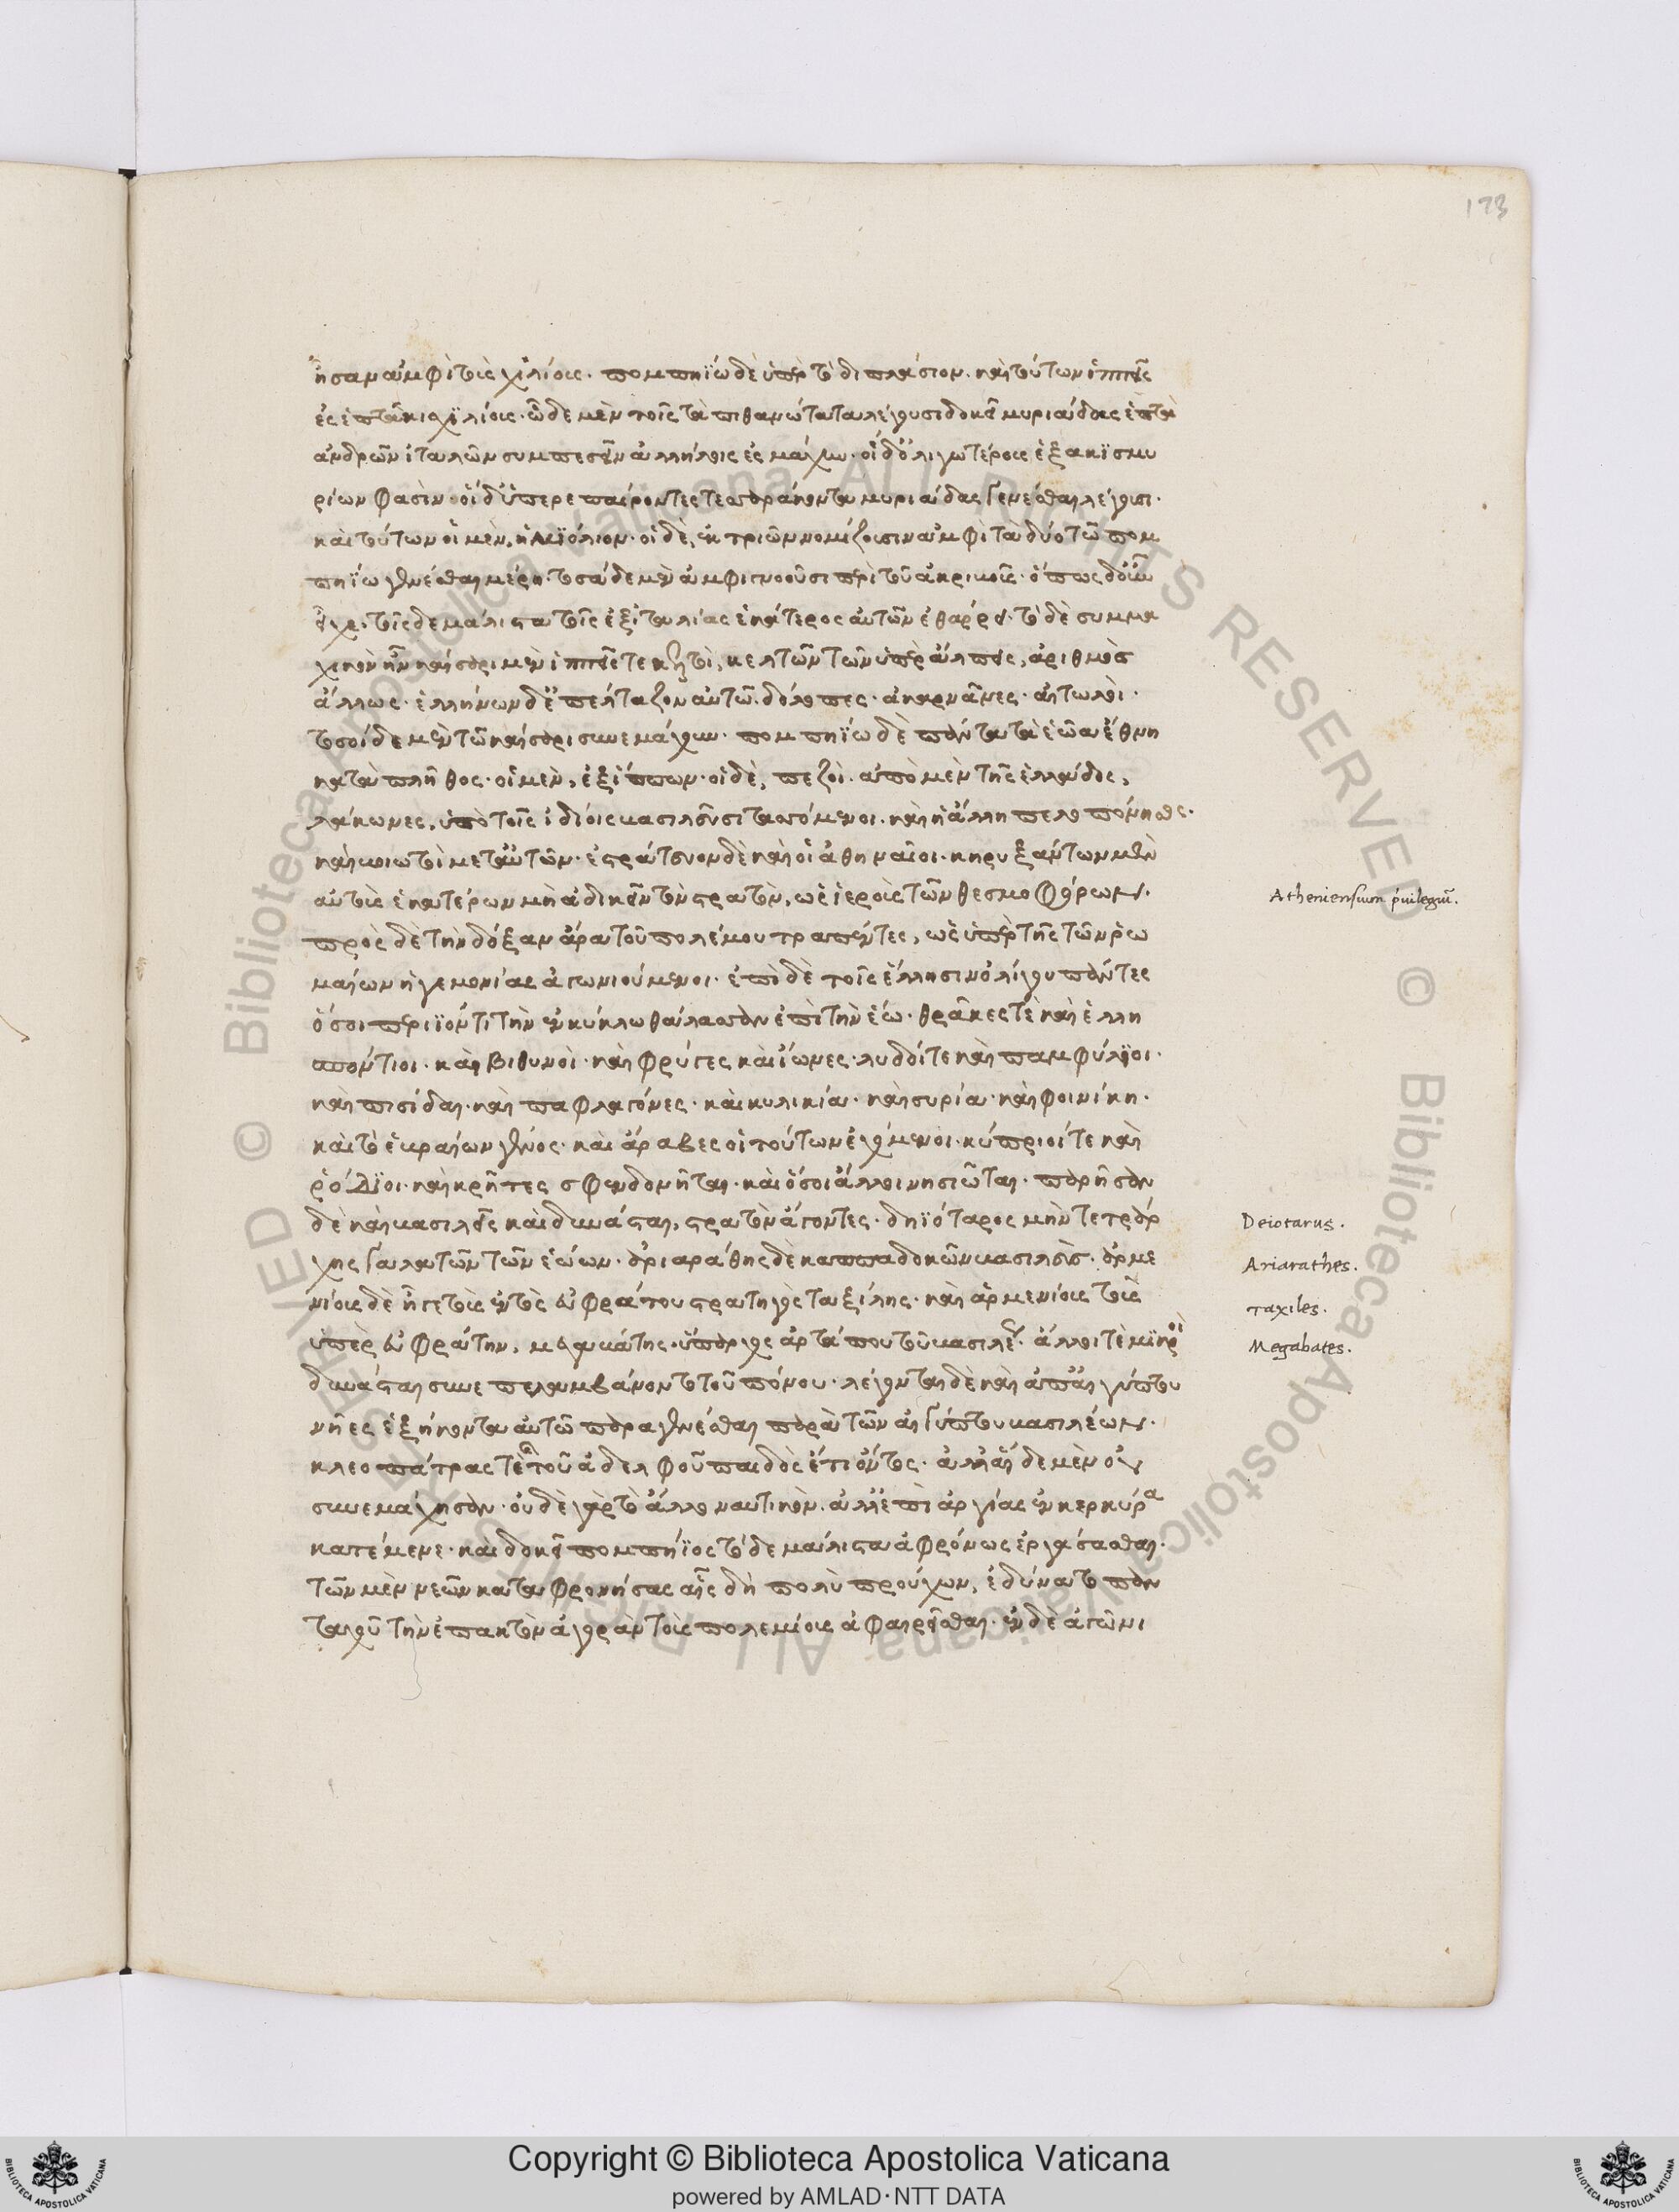 173
ἦσαν ἀμφὶ τοὺς χιλίους· πομπηΐω δὲ ὑπὲρ τὸ διπλάσιον. καὶ τούτων ἱππεῖς
ἐς ἑπτακισχιλίους· ὧδε μὲν τοῖς τὰ πιθανώτατα λέγουσι δοκεῖ μυριάδας ἑπτὰ
ἀνδρῶν ἰταλῶν συμπεσεῖν ἀλλήλοις ἐς μάχην· οἱ δ' ὀλιγωτέρους ἑξακισμυ
ρίων φασὶν· οἱ δ' ὑπερεπαίροντες τεσσαράκοντα μυριάδας γενέσθαι λέγουσι·
καὶ τούτων οἱ μὲν, ἡμιόλιον· οἱ δὲ, ἐκ τριῶν νομίζουσιν ἀμφὶ τὰ δύο τῶ πομ
πηΐω γενέσθαι μέρη· τοσάδε μὲν ἀμφιγνοοῦσι περὶ τοῦ ἀκριβοῦς· ὅπως δ' οὖν
εἶχε, τοῖσδε μάλιστα τοῖς ἐξ ἰταλίας ἑκάτερος αὐτῶν ἐθάρρει· τὸ δὲ συμμα
χικὸν ἦν καίσαρι μὲν ἱππεῖς τε κελτοὶ, κελτῶν τῶν ὑπὲρ ἄλπεις, ἀριθμὸς
ἄλλος· ἑλλήνων δ' ἐπέλταζον αὐτῶ. δόλοπες· ἀκαρνᾶνες· αἰτωλοὶ·
τοσοίδε μὲν τῶ καίσαρι συνεμάχουν· πομπηΐω δὲ πάντα τὰ ἑῶα ἔθνη
κατὰ πλῆθος· οἱ μὲν, ἐξ ἵππων· οἱ δὲ, πεζοὶ. ἀπὸ μὲν τῆς ἑλλάδος,
λάκωνες, ὑπὸ τοῖς ἰδίοις βασιλεῦσι τασσόμενοι. καὶ ἡ ἄλλη πελοπόννησος.
καὶ βοιωτοὶ μετ' αὐτῶν· ἐστράτευον δὲ καὶ οἱ ἀθηναῖοι· κηρυξάντων μὲν
αὐτοὺς ἑκατέρων μὴ ἀδικεῖν τὸν στρατὸν, ὡς ἱεροὺς τῶν θεσμοφόρων.
πρὸς δὲ τὴν δόξαν ἄρα τοῦ πολέμου τραπέντες, ὡς ὑπὲρ τῆς τῶν ῥω
μαίων ἡγεμονίας ἀγωνιούμενοι· ἐπὶ δὲ τοῖς ἕλλησιν ὀλίγου πάντες
ὅσοι περιϊόντι τὴν ἐν κύκλω θάλασσαν ἐπὶ τὴν ἕω· θρᾶκές τὲ καὶ ἑλλη
σπόντιοι· καὶ βιθυνοὶ· καὶ φρύγες καὶ ἴωνες· λυδδοί τε καὶ παμφύλϊοι·
καὶ πισίδαι· καὶ παφλαγόνες· καὶ κυλικία· καὶ συρία· καὶ φοινίκη·
καὶ τὸ ἑβραίων γένος· καὶ ἄραβες οἱ τούτων ἐχόμενοι· κύπριοί τε καὶ
ῥόδϊοι· καὶ κρῆτες σφενδονῆται· καὶ ὅσοι ἄλλοι νησιῶται· παρῆσαν
δὲ καὶ βασιλεῖς καὶ δυνάσται, στρατὸν ἄγοντες· δηϊόταρος μὲν τετράρ
χης γαλατῶν τῶν ἑώων· ἀριαράθης δὲ καππαδοκῶν βασιλεὺς· ἀρμε
νίους δὲ ἦγε τοὺς ἐντὸς εὐφράτου στρατηγὸς ταξίλης· καὶ ἀρμενίους τοὺς
ὑπὲρ εὐφράτην, μεγαβάτης· ὕπαρχος ἀρτάπου τοῦ βασιλέως· ἄλλοι τὲ μικροὶ
δυνάσται συνεπελαμβάνοντο τοῦ πόνου· λέγονται δὲ καὶ ἀπ' αἰγύπτου
νῆες ἑξήκοντα αὐτῶ παραγενέσθαι παρὰ τῶν αἰγύπτου βασιλέων.
κλεοπάτρας τὲ καὶ τοῦ ἀδελφοῦ παιδὸς ἔτι ὄντος· ἀλλ' αἵδε μὲν οὐ
συνεμάχησαν· οὐδὲ γὰρ τὸ ἄλλο ναυτικὸν. ἀλλ' ἐπὶ ἀργίας ἐν κερκύρα
κατέμενε· καὶ δοκεῖ πομπήϊος τόδε μάλιστα ἀφρόνως ἐργάσασθαι.
τῶν μὲν νεῶν καταφρονήσας αἷς δὴ πολὺ προύχων, ἐδύνατο παν
ταχοῦ τὴν ἐπακτὸν ἀγορὰν τοὺς πολεμίους ἀφαιρεῖσθαι· ἐν δὲ ἀγῶνι
Atheniensium p'uilegiũ.
Deiotarus.
Ariarathes.
Taxiles.
Megabates.
© Biblioteca Apostolica Vaticana ALL RIGHTS RESERVED
© Biblioteca Apostolica Vaticana ALL RIGHTS RESERVED
Copyright © Biblioteca Apostolica Vaticana
powered by AMLAD·NTT DATA
BIBLIOTECA APOSTOLICA VATICANA
BIBLIOTECA APOSTOLICA VATICANA